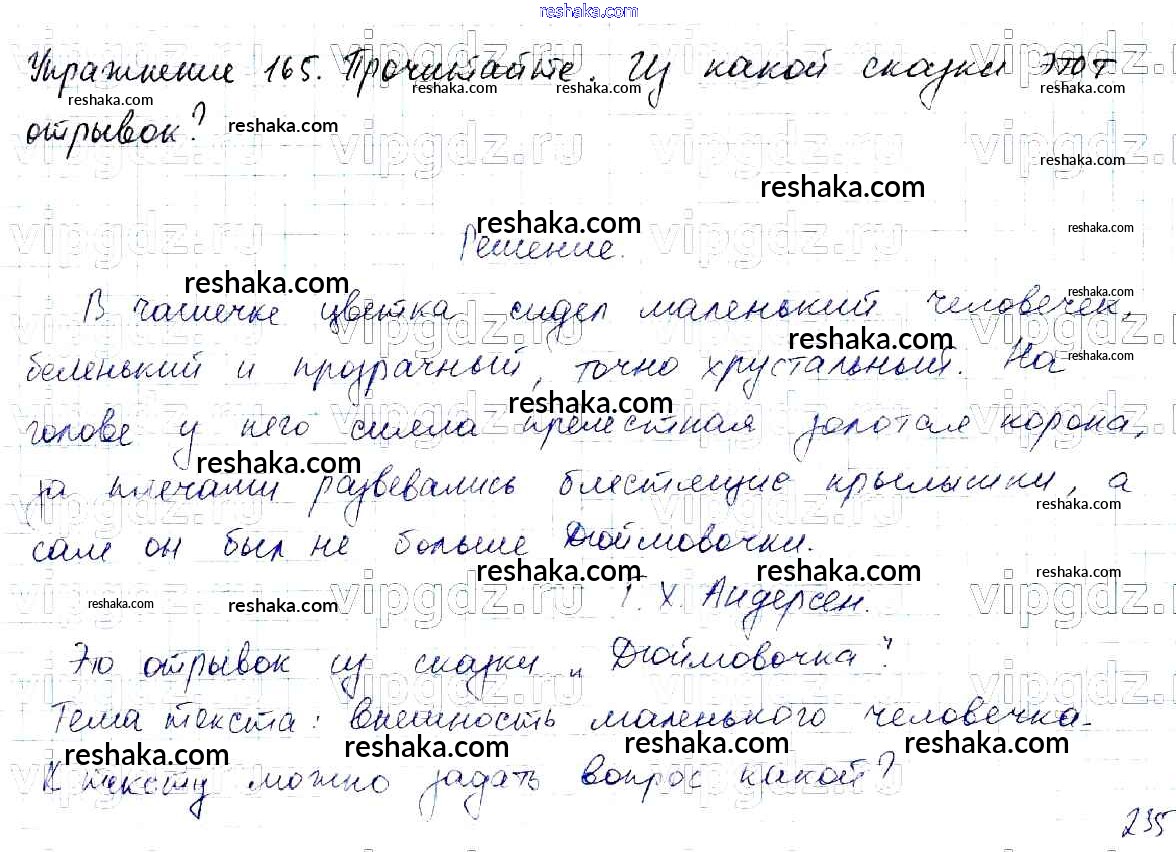 reshaka.com
Упражнение 165. Прочитайте. Из какой сказки этот
отрывок?
Решение.
В чашечке цветка сидел маленький человечек,
беленький и прозрачный, точно хрустальный. На
голове у него сияла прелестная золотая корона,
за плечами развевались блестящие крылышки, а
сам он был не больше Дюймовочки.
Г. Х. Андерсен.
Это отрывок из сказки „Дюймовочка".
Тема текста: внешность маленького человечка.
К тексту можно задать вопрос какой?
235